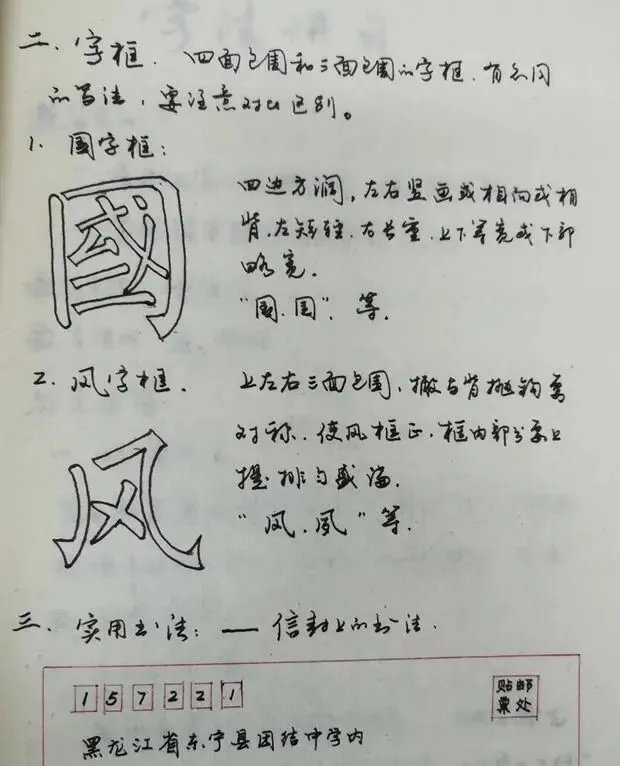 二、字框. 四面包围和三面包围的字框. 有不同
的写法, 要注意对比区别。
1. 国字框:
國
四边方润, 左右竖画或相向或相
背. 左短轻. 右长重. 上下等宽或下部
略宽.
"国. 国". 等.
2. 风字框.
风
上左右三面包围, 撇与背抛钩要
对称. 使风框正. 框内部分要上
提 排匀
"风. 凨" 等.
三. 实用书法: — 信封上的书法.
1 5 7 2 2 1
贴邮
票处
黑龙江省东宁县团结中学内